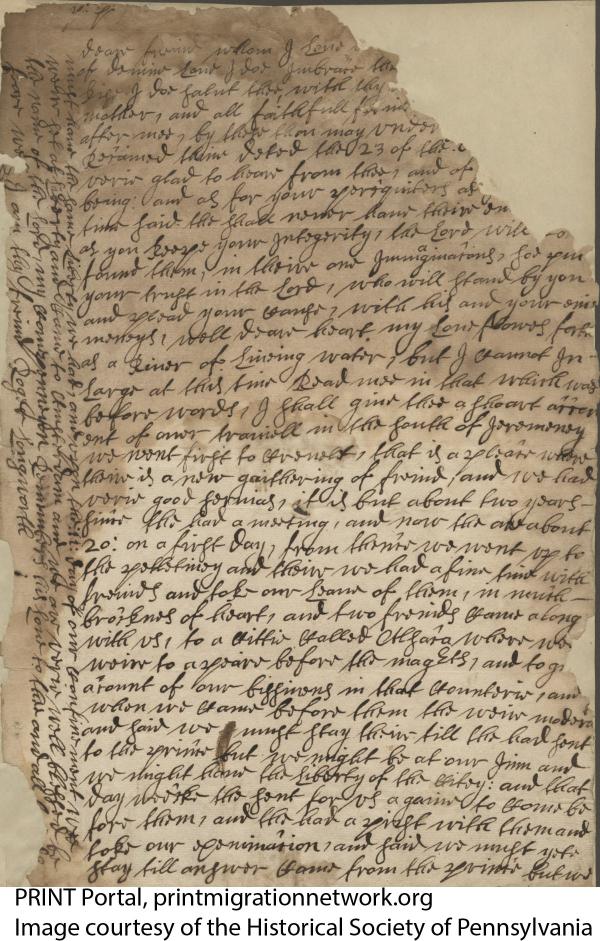 deare freind whom I Love
of devine Love I doe Imbrace the
I doe salut thee with thy
mother, and all faithfull
after mee, by these thou may under
Receaived thine deted the 23 of the
verie glad to heare from thee, and of
being: and as for your
time said the shall never have theire
as you keepe your Integerity, the Lord will
found them, in theire one Immaginations, soe put
your trust in the Lord, who will stand by you
and plead your Cause, with his and your enie
meneys, well deare heart my Love flowes forth
as a River of Liveing water, but I Cannot In-
Large at this time Read mee in that which was
before words, I shall give thee a shoart accou
ent of ower travell in the south of Jeremeney
we went first to Crevelt, that is a pleace where
theire is a new gaithering of freind, and we had
verie good servias, it is but about two years-
since the had a meeting, and now the are about
20: on a first day, from thence we went up to
the and theire we had a fine time with
freinds and toke our Leave of them, in much-
brocknes of heart, and two freinds Came along
with us, to a Cittie Called where we
weire to apeare before the and to gi
acount of our bissiness in that Counterie, and
when we Came before them the weire modera
and said we must stay theire till the had sent
to the prince but we might be at our Inn and
we might have the liberty of the Citey: and that
day weeke the sent for us againe to Come be
fore them, and the had a with them and
toke our exeminacion, and said we must yete
stay till answer Came from the prince but we
must have the same liberty we had, and
of our Confinement we
weire set at liberty and Came to
and we are verie well
the name of the Lord, my Companion
his love to thee and all
fare well I am thy freind Roger Longworth
PRINT Portal, printmigrationnetwork.org
Image courtesy of the Historical Society of Pennsylvania